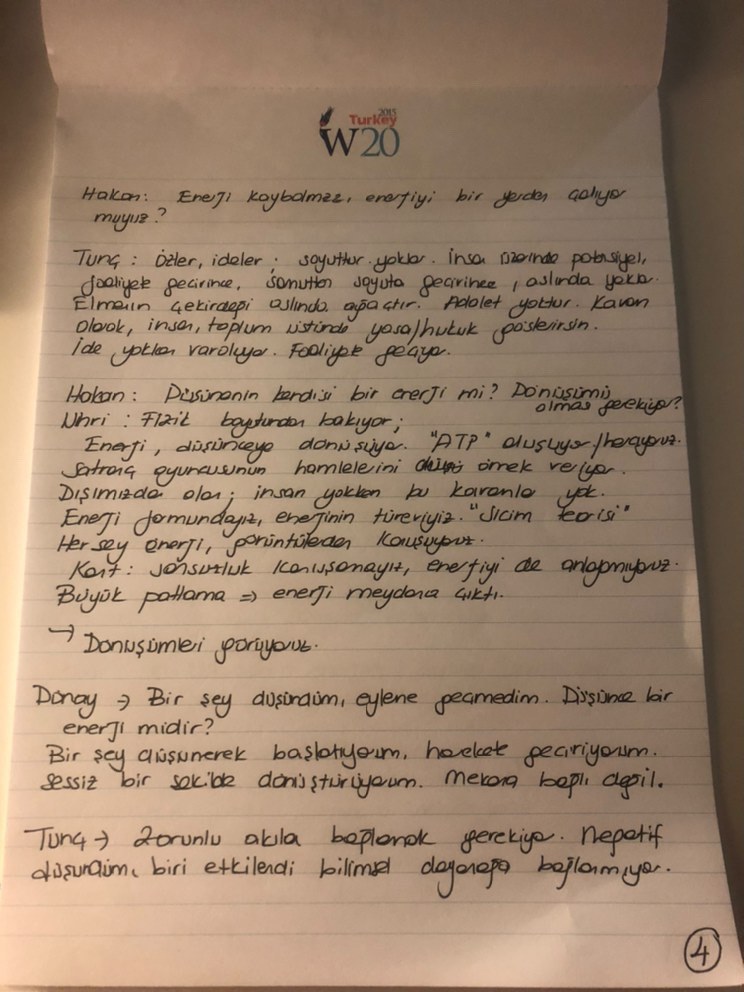 2015
Turkey
W20
Hakan: Enerji kaybolmaz, enerjiyi bir yerden çalıyor
muyuz?
Tunç: Özler, ideler; soyuttur. yoklar. İnsan üzerinde potansiyel,
faaliyete geçirince, somuttan soyuta geçirince, aslında yoklar.
Elmanın çekirdeği aslında ağaçtır. Adalet yoktur. Kavram
olarak, insan, toplum üstünde yasa/hukuk gösterirsin.
İde yokken varoluyor. Faaliyete geçiyor.
Hakan: Düşüncenin kendisi bir enerji mi? Dönüşümü
olması gerekiyor?
Nuri: Fizik boyutundan bakıyor;
Enerji, düşünceye dönüşüyor. "ATP" oluşuyor/harcıyoruz.
Satranç oyuncusunun hamlelerini örnek veriyor.
Dışımızda olan; insan yokken bu kavramlar yok.
Enerji formundayız, enerjinin türeviyiz. "Sicim teorisi"
Her şey enerji, görüntülerden konuşuyoruz.
Kant: Sonsuzluk konuşamayız, enerjiyi de anlayamıyoruz.
Büyük patlama => enerji meydana çıktı.
→ Dönüşümleri görüyoruz.
Dönay → Bir şey düşündüm, eylene geçmedim. Düşünce bir
enerji midir?
Bir şey düşünerek başlatıyorum, harekete geçiriyorum.
Sessiz bir şekilde dönüştürüyorum. Mekana bağlı değil.
Tunç → Zorunlu akıla bağlamak gerekiyor. Negatif
düşündüm, biri etkilendi bilimsel dayanağa bağlanmıyor.
4